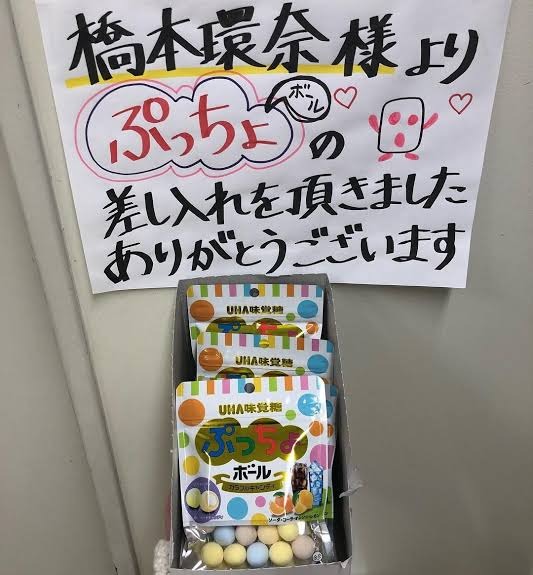 橋本環奈様より
ぷっちょボールの
差し入れを頂きました
ありがとうございます
UHA味覚糖
ぷっちょ
UHA味覚糖
UHA味覚糖
ぷっちょ
ボール
カラフルキャンディ